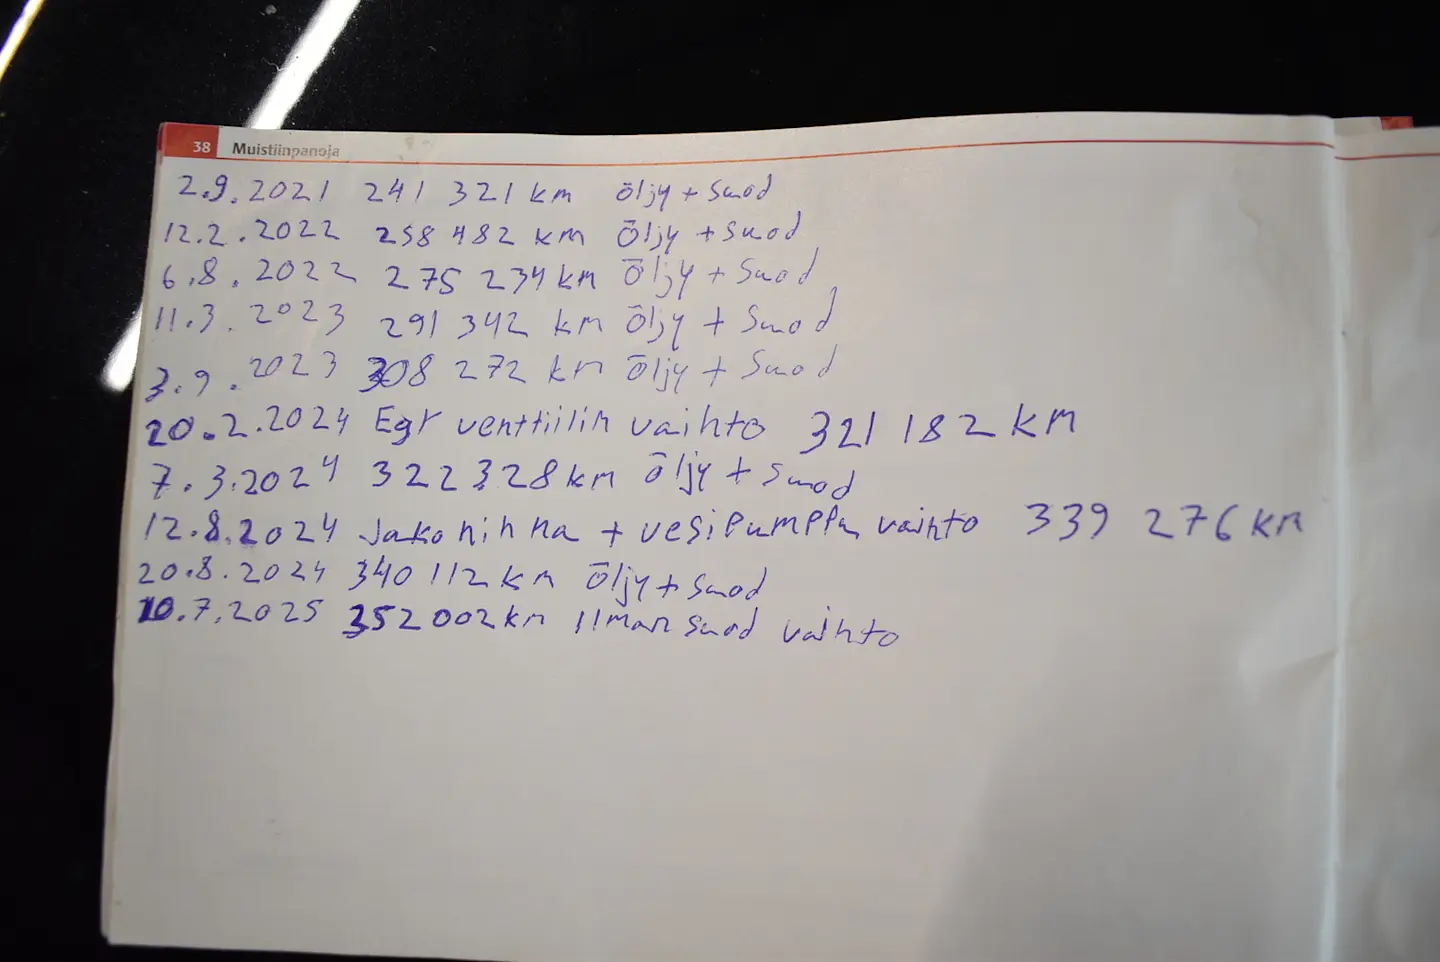 38 Muistiinpanoja
2.9.2021 241 321 km öljy + Suod
12.2.2022 258 482 km Öljy + Suod
6.8.2022 275 234 km Öljy + Suod
11.3.2023 291 342 km Öljy + Suod
3.9.2023 308 272 km Öljy + Suod
20.2.2024 Egr venttiilin vaihto 321 182 km
7.3.2024 322 328 km Öljy + Suod
12.8.2024 Jakohihna + vesipumppu vaihto 339 276 km
20.8.2024 340 112 km Öljy + Suod
10.7.2025 352 002 km Ilman suod vaihto